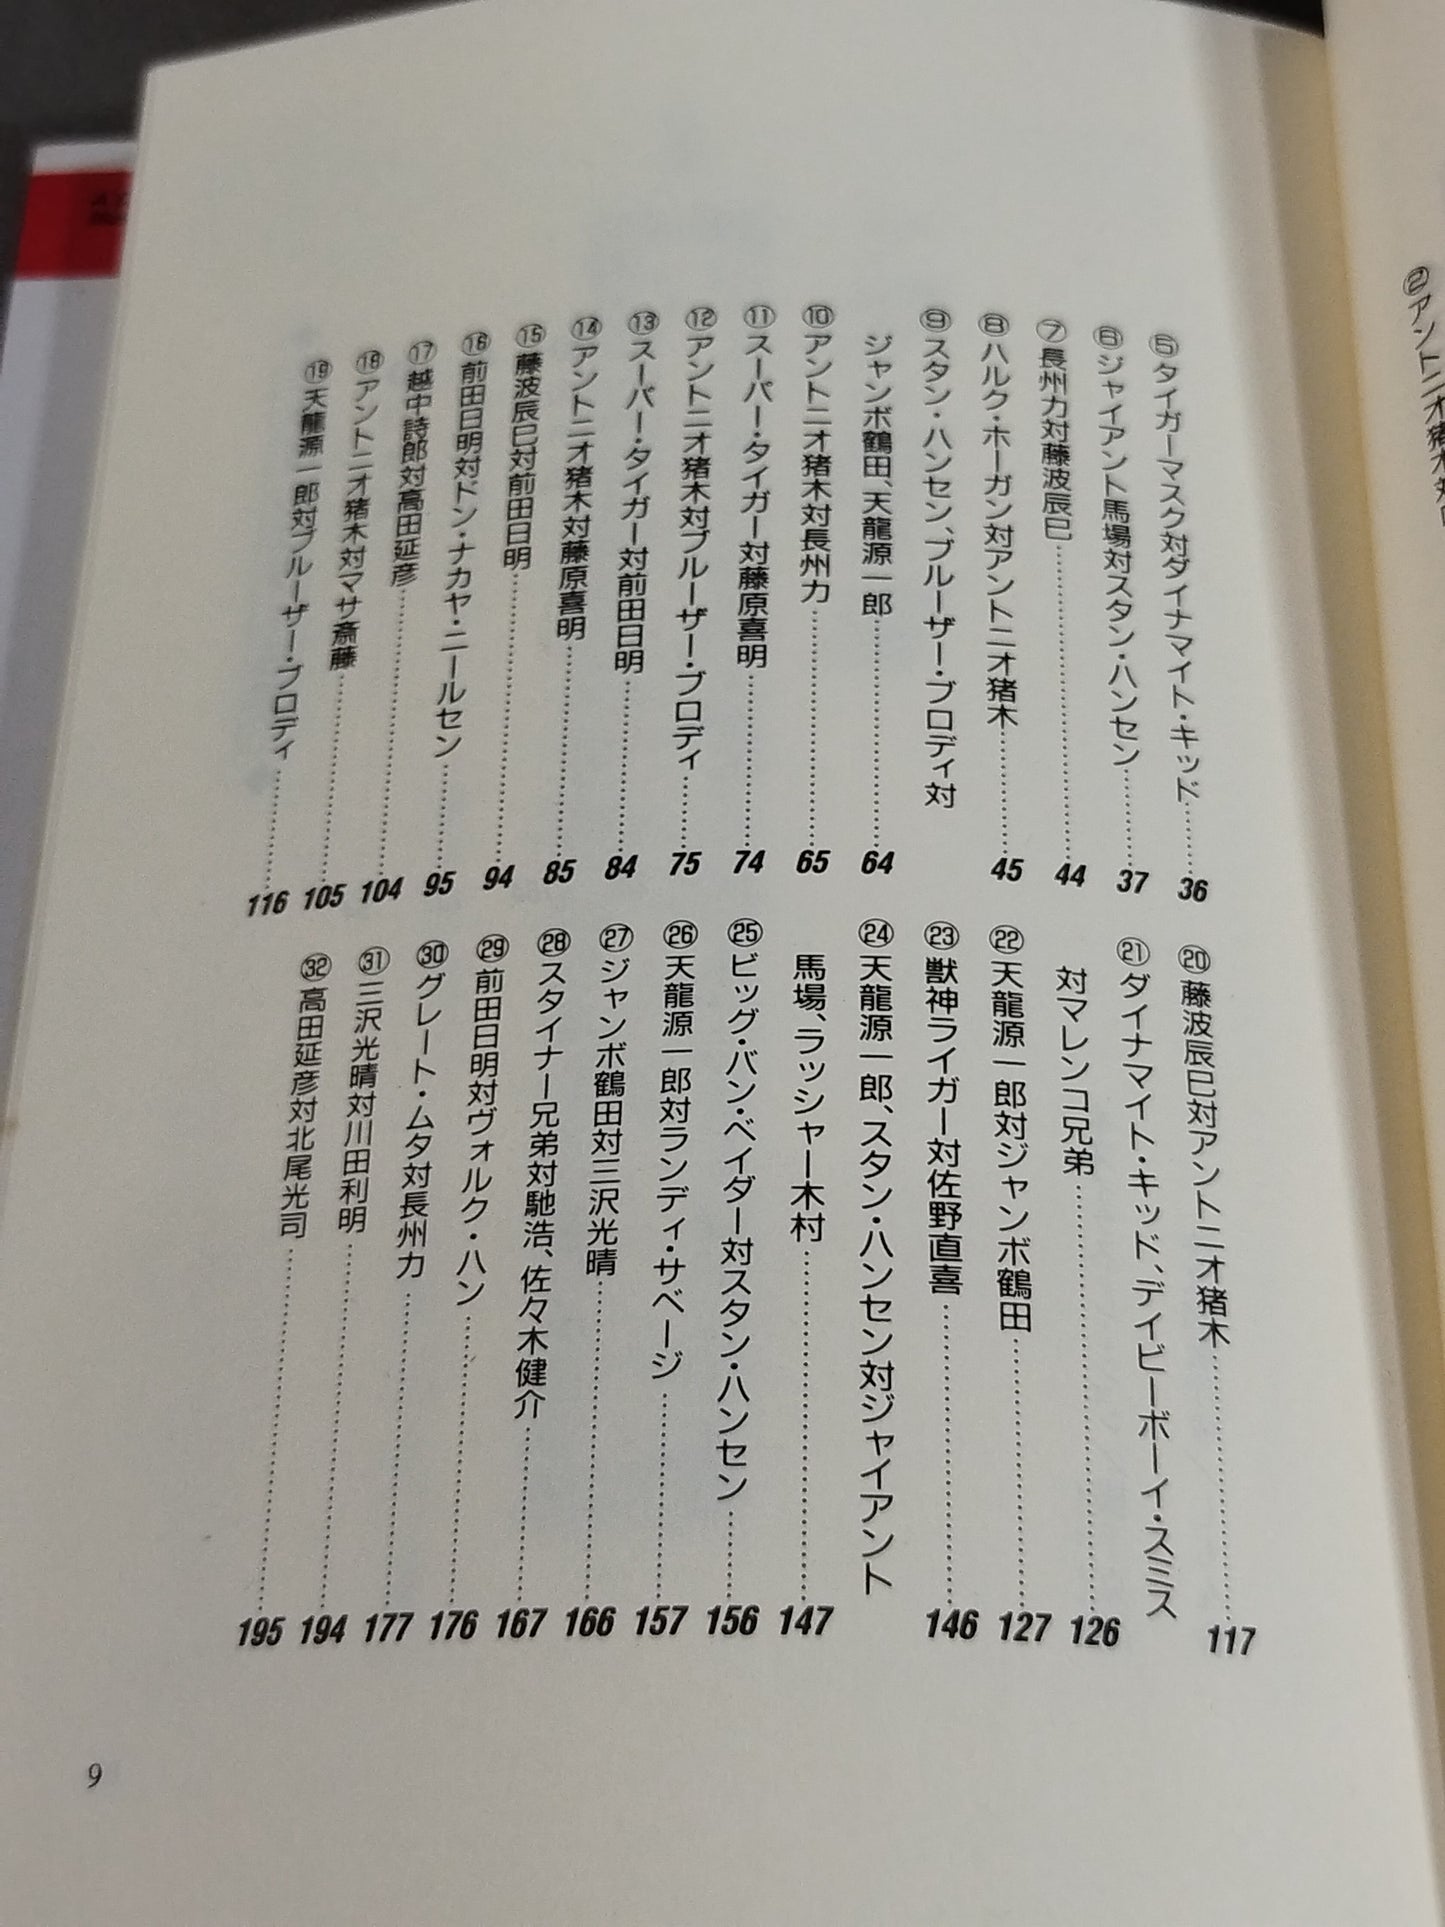 ②アントニオ猪木対
⑤タイガーマスク対ダイナマイト・キッド……36
⑥ジャイアント馬場対スタン・ハンセン……37
⑦長州力対藤波辰巳……44
⑧ハルク・ホーガン対アントニオ猪木……45
⑨スタン・ハンセン、ブルーザー・ブロディ対
ジャンボ鶴田、天龍源一郎……64
⑩アントニオ猪木対長州力……65
⑪スーパー・タイガー対藤原喜明……74
⑫アントニオ猪木対ブルーザー・ブロディ……75
⑬スーパー・タイガー対前田日明……84
⑭アントニオ猪木対藤原喜明……85
⑮藤波辰巳対前田日明……94
⑯前田日明対ドン・ナカヤ・ニールセン……95
⑰越中詩郎対高田延彦……104
⑱アントニオ猪木対マサ斎藤……105
⑲天龍源一郎対ブルーザー・ブロディ……116
⑳藤波辰巳対アントニオ猪木……117
㉑ダイナマイト・キッド、デイビーボーイ・スミス
対マレンコ兄弟……126
㉒天龍源一郎対ジャンボ鶴田……127
㉓獣神ライガー対佐野直喜……146
㉔天龍源一郎、スタン・ハンセン対ジャイアント
馬場、ラッシャー木村……147
㉕ビッグ・バン・ベイダー対スタン・ハンセン……156
㉖天龍源一郎対ランディ・サベージ……157
㉗ジャンボ鶴田対三沢光晴……166
㉘スタイナー兄弟対馳浩、佐々木健介……167
㉙前田日明対ヴォルク・ハン……176
㉚グレート・ムタ対長州力……177
㉛三沢光晴対川田利明……194
㉜高田延彦対北尾光司……195
9